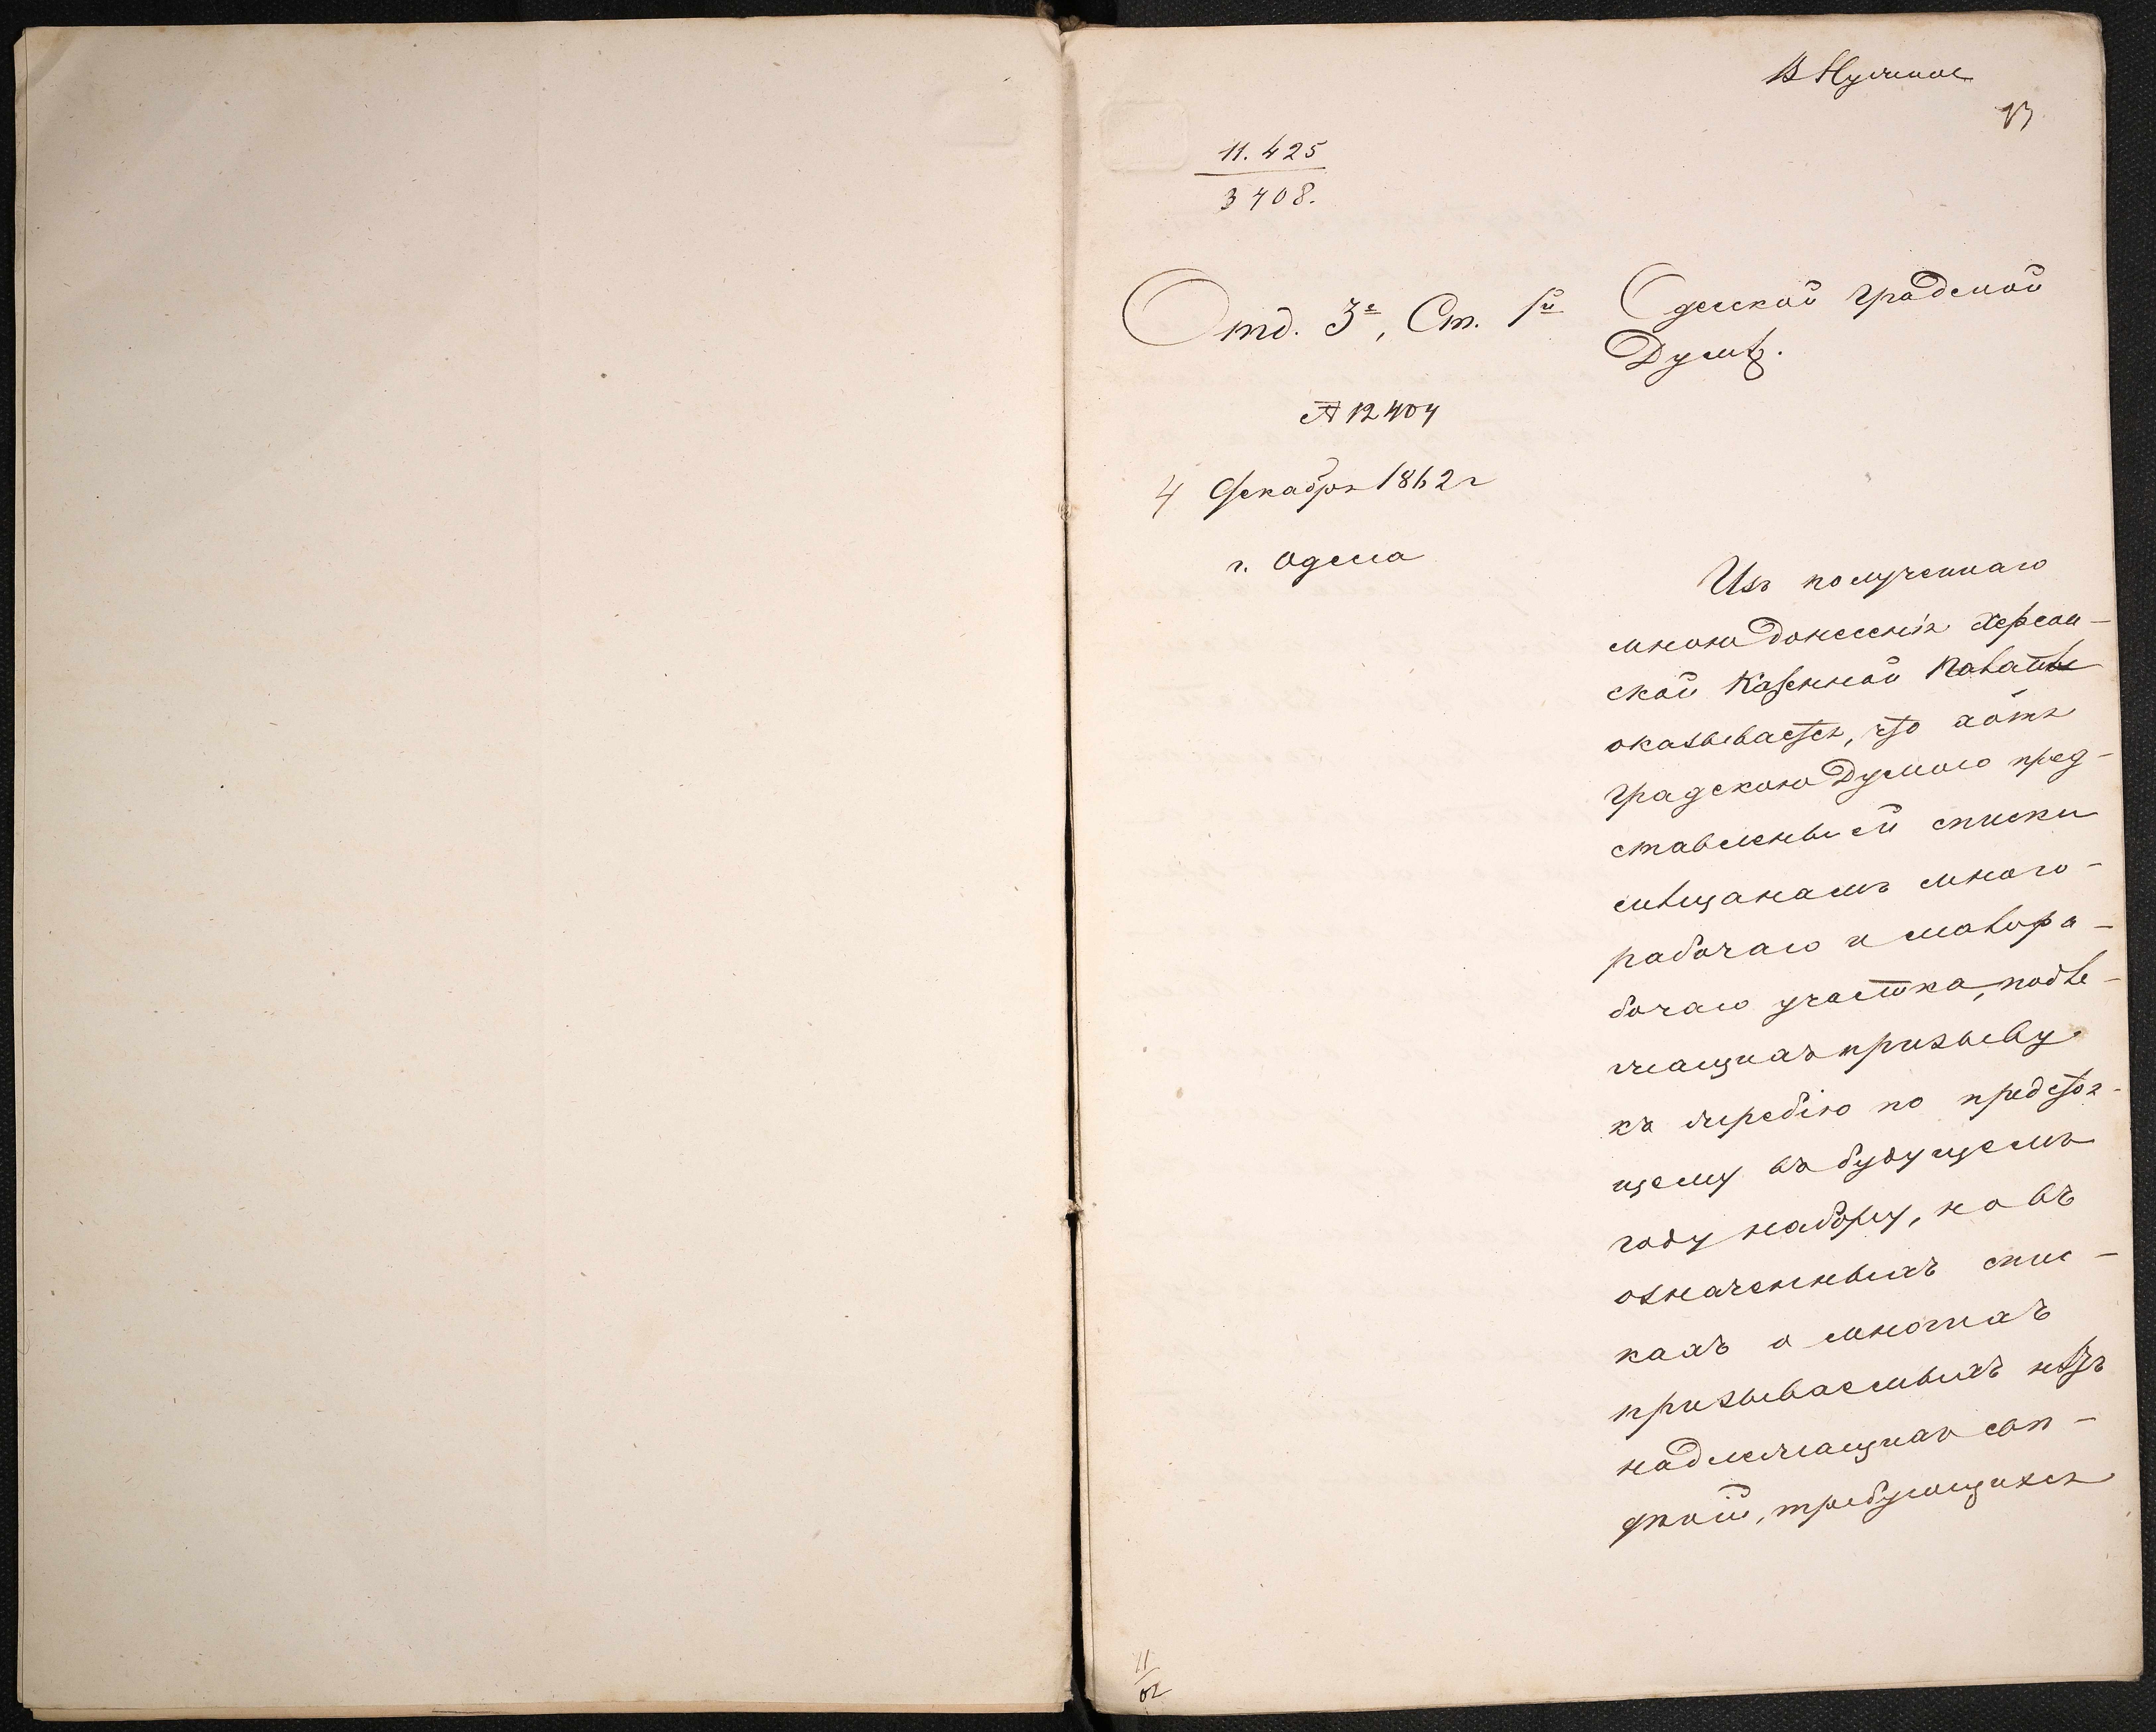 В Нужное
13
11.425
3408.
Отд. 3е, Ст. 1й
№ 12404
4 Декабря 1862 г
г. Одесса
Одесской градской
Думѣ.
Изъ полученнаго
мною донесенія Херсон-
ской Казенной Палаты
оказывается, что хотя
градскою Думою пред-
ставлены ей списки
мѣщанамъ много-
рабочаго и малора-
бочаго участка, подле-
жащихъ призыву
къ жеребію по предстоя-
щему въ будущемъ
году набору, но въ
означенныхъ спис-
кахъ о многихъ
призываемыхъ нѣтъ
надлежащихъ свѣ-
деній, требующихся
11
02